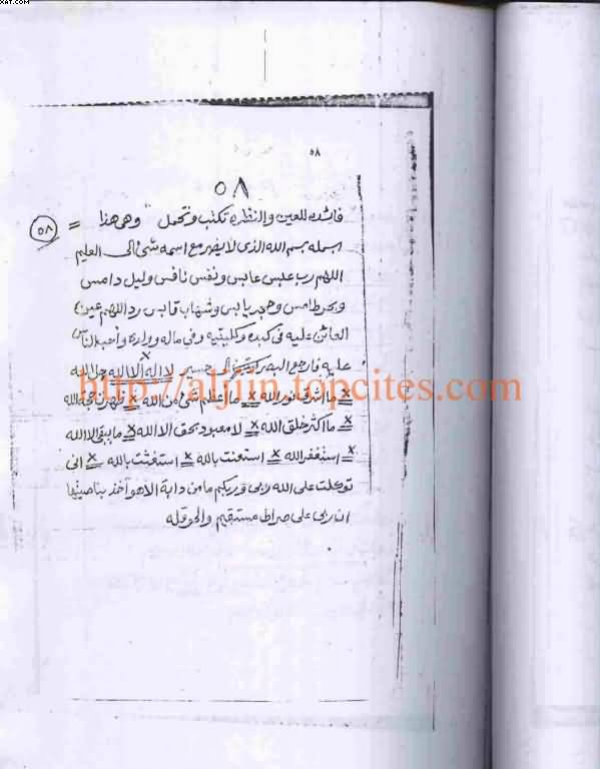 xat.com
٥٨
٥٨
فائده للعين والنظره تكتب وتحمل وهى هذا =
٥٨
ابسمله بسم الله الذى لا يضر مع اسمه شئ الى العليم
اللهم رب عبس عابس ونفس نافس وليل دامس
وبحر طامس وحجر يابس وشهاب قابس رد اللهم عين
العائن عليه فى كبده وكليتيه وفى ماله وولده واحب الناس
عليه فارجع البصر كرتين الى حسير لا اله الا الله جل الله
x ما اشرق نور الله x ما اعلم عن الله x حجة الله
x ما اكثر خلق الله x لا معبود بحق الا الله x ما يبقى الا الله
x استغفر الله x استعنت بالله x استغثت بالله x انى
توكلت على الله ربى وربكم مامن دابة الا هو آخذ بناصيتها
ان ربى على صراط مستقيم والحوقله
http://aljiin.topcites.com